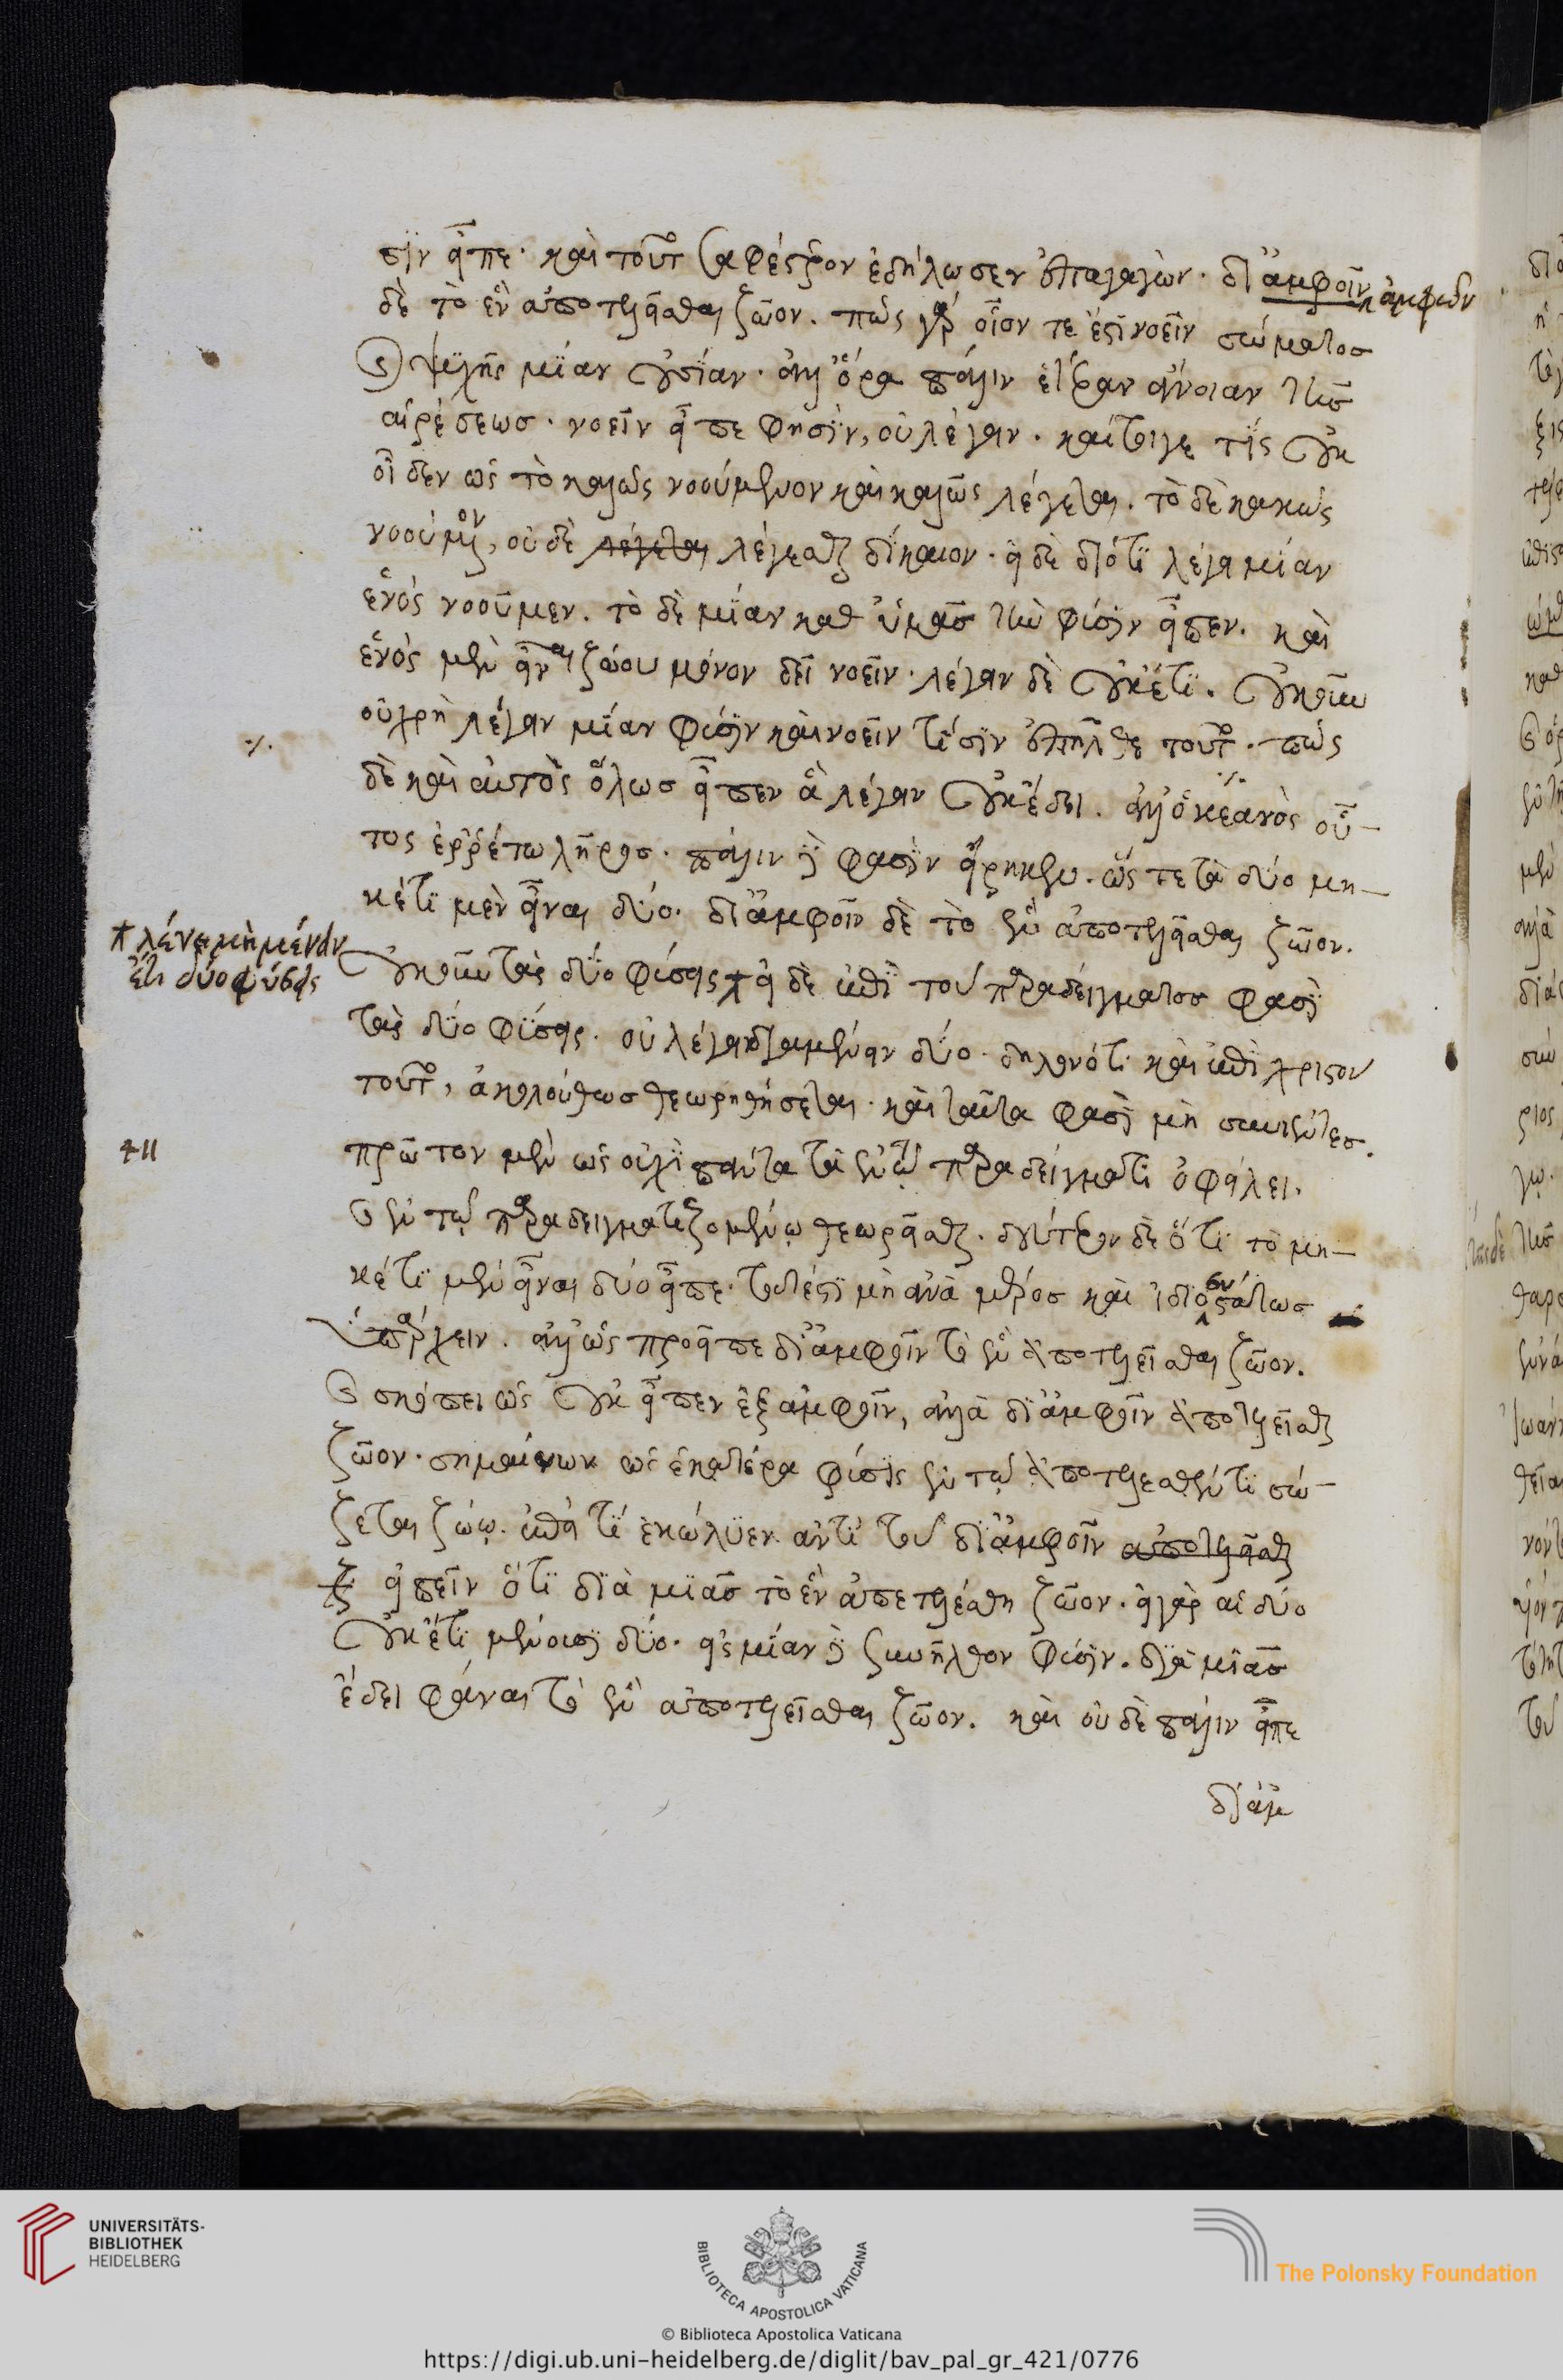 σιν εἶπε· καὶ τοῦτο σαφέστερον ἐδήλωσεν ἐπαγαγὼν· δι᾽ ἀμφοῖν
δὲ τὸ ἓν ἀποτελεῖσθαι ζῶον. πῶς γὰρ οἷόν τε ἐστὶ νοεῖν σώματος
καὶ ψυχῆς μίαν οὐσίαν. ἀλλ᾽ ὅρα πάλιν ἑτέραν ἄνοιαν τῆς
αἱρέσεως. νοεῖν εἶπε φησὶν, οὐ λέγειν. καίτοιγε τίς οὐκ
οἶδεν ὡς τὸ καλῶς νοούμενον καὶ καλῶς λέγεται. τὸ δὲ κακῶς
νοούμενον, οὐδὲ λέγεται λέγεσθαι δίκαιον. εἰ δὲ διότι λέγει μίαν
ἑνὸς νοοῦμεν. τὸ δὲ μίαν καθ᾽ ὑμᾶς τὴν φύσιν εἶπεν. καὶ
ἑνὸς μὲν εἶναι ζώου μόνον δεῖ νοεῖν. λέγειν δὲ οὐκέτι. οὐκοῦν
οὐ χρὴ λέγειν μίαν φύσιν καὶ νοεῖν τισὶν ἐπῆλθε τοῦτο. πῶς
δὲ καὶ αὐτὸς ὅλως εἶπεν ἃ λέγειν οὐκ ἔδει. ἀλλ᾽ ὁ κεανὸς οὗ-
τος ἐρρέτω λῆρος. πάλιν φασὶν εἴρηκεν. ὥστε τὰ δύο μη-
κέτι μὲν εἶναι δύο. δι᾽ ἀμφοῖν δὲ τὸ ἓν ἀποτελεῖσθαι ζῶον.
λέγει μὴ μένειν
ἔτι δύο φύσεις
οὐκοῦν τὰς δύο φύσεις εἰ δὲ ἐπὶ τοῦ παραδείγματος φασὶ
τὰς δύο φύσεις. οὐ λέγει διαμένειν δύο. δηλονότι καὶ ἐπὶ χριστοῦ
τοῦτο, ἀκολούθως θεωρηθήσεται. καὶ ταῦτα φασὶ μὴ συνιέντες.
πρῶτον μὲν ὡς οὐχὶ πάντα τὰ ἐν τῷ παραδείγματι ὀφείλει.
καὶ ἐν τῷ παραδειγματιζομένῳ θεωρεῖσθαι. δεύτερον δὲ ὅτι τὸ μη-
κέτι μὲν εἶναι δύο εἶπε. τουτέστι μὴ ἀνὰ μέρος καὶ ἰδιοσυστάτως
ὑπάρχειν. ἀλλ᾽ ὡς προεῖπε δι᾽ ἀμφοῖν τὸ ἓν ἀποτελεῖσθαι ζῶον.
καὶ σκόπει ὡς οὐκ εἶπεν ἐξ ἀμφοῖν, ἀλλὰ δι᾽ ἀμφοῖν ἀποτελεῖσθαι
ζῶον. σημαίνων ὡς ἑκατέρα φύσις ἐν τῷ ἀποτελεσθέντι σώ-
ζεται ζώῳ. ἐπεὶ τί ἐκώλυεν ἀντὶ τοῦ δι᾽ ἀμφοῖν ἀποτελεῖσθαι
εἰπεῖν ὅτι διὰ μιᾶς τὸ ἓν ἀπετελέσθη ζῶον. εἰ γὰρ αἱ δύο
οὐκέτι μένουσι δύο. εἰς μίαν συνῆλθον φύσιν. διὰ μιᾶς
ἔδει φάναι τὸ ἓν ἀποτελεῖσθαι ζῶον. καὶ οὐδὲ πάλιν εἶπε
δι᾽ ἀμ
UNIVERSITÄTS-
BIBLIOTHEK
HEIDELBERG
BIBLIOTECA APOSTOLICA VATICANA
The Polonsky Foundation
© Biblioteca Apostolica Vaticana
https://digi.ub.uni-heidelberg.de/diglit/bav_pal_gr_421/0776